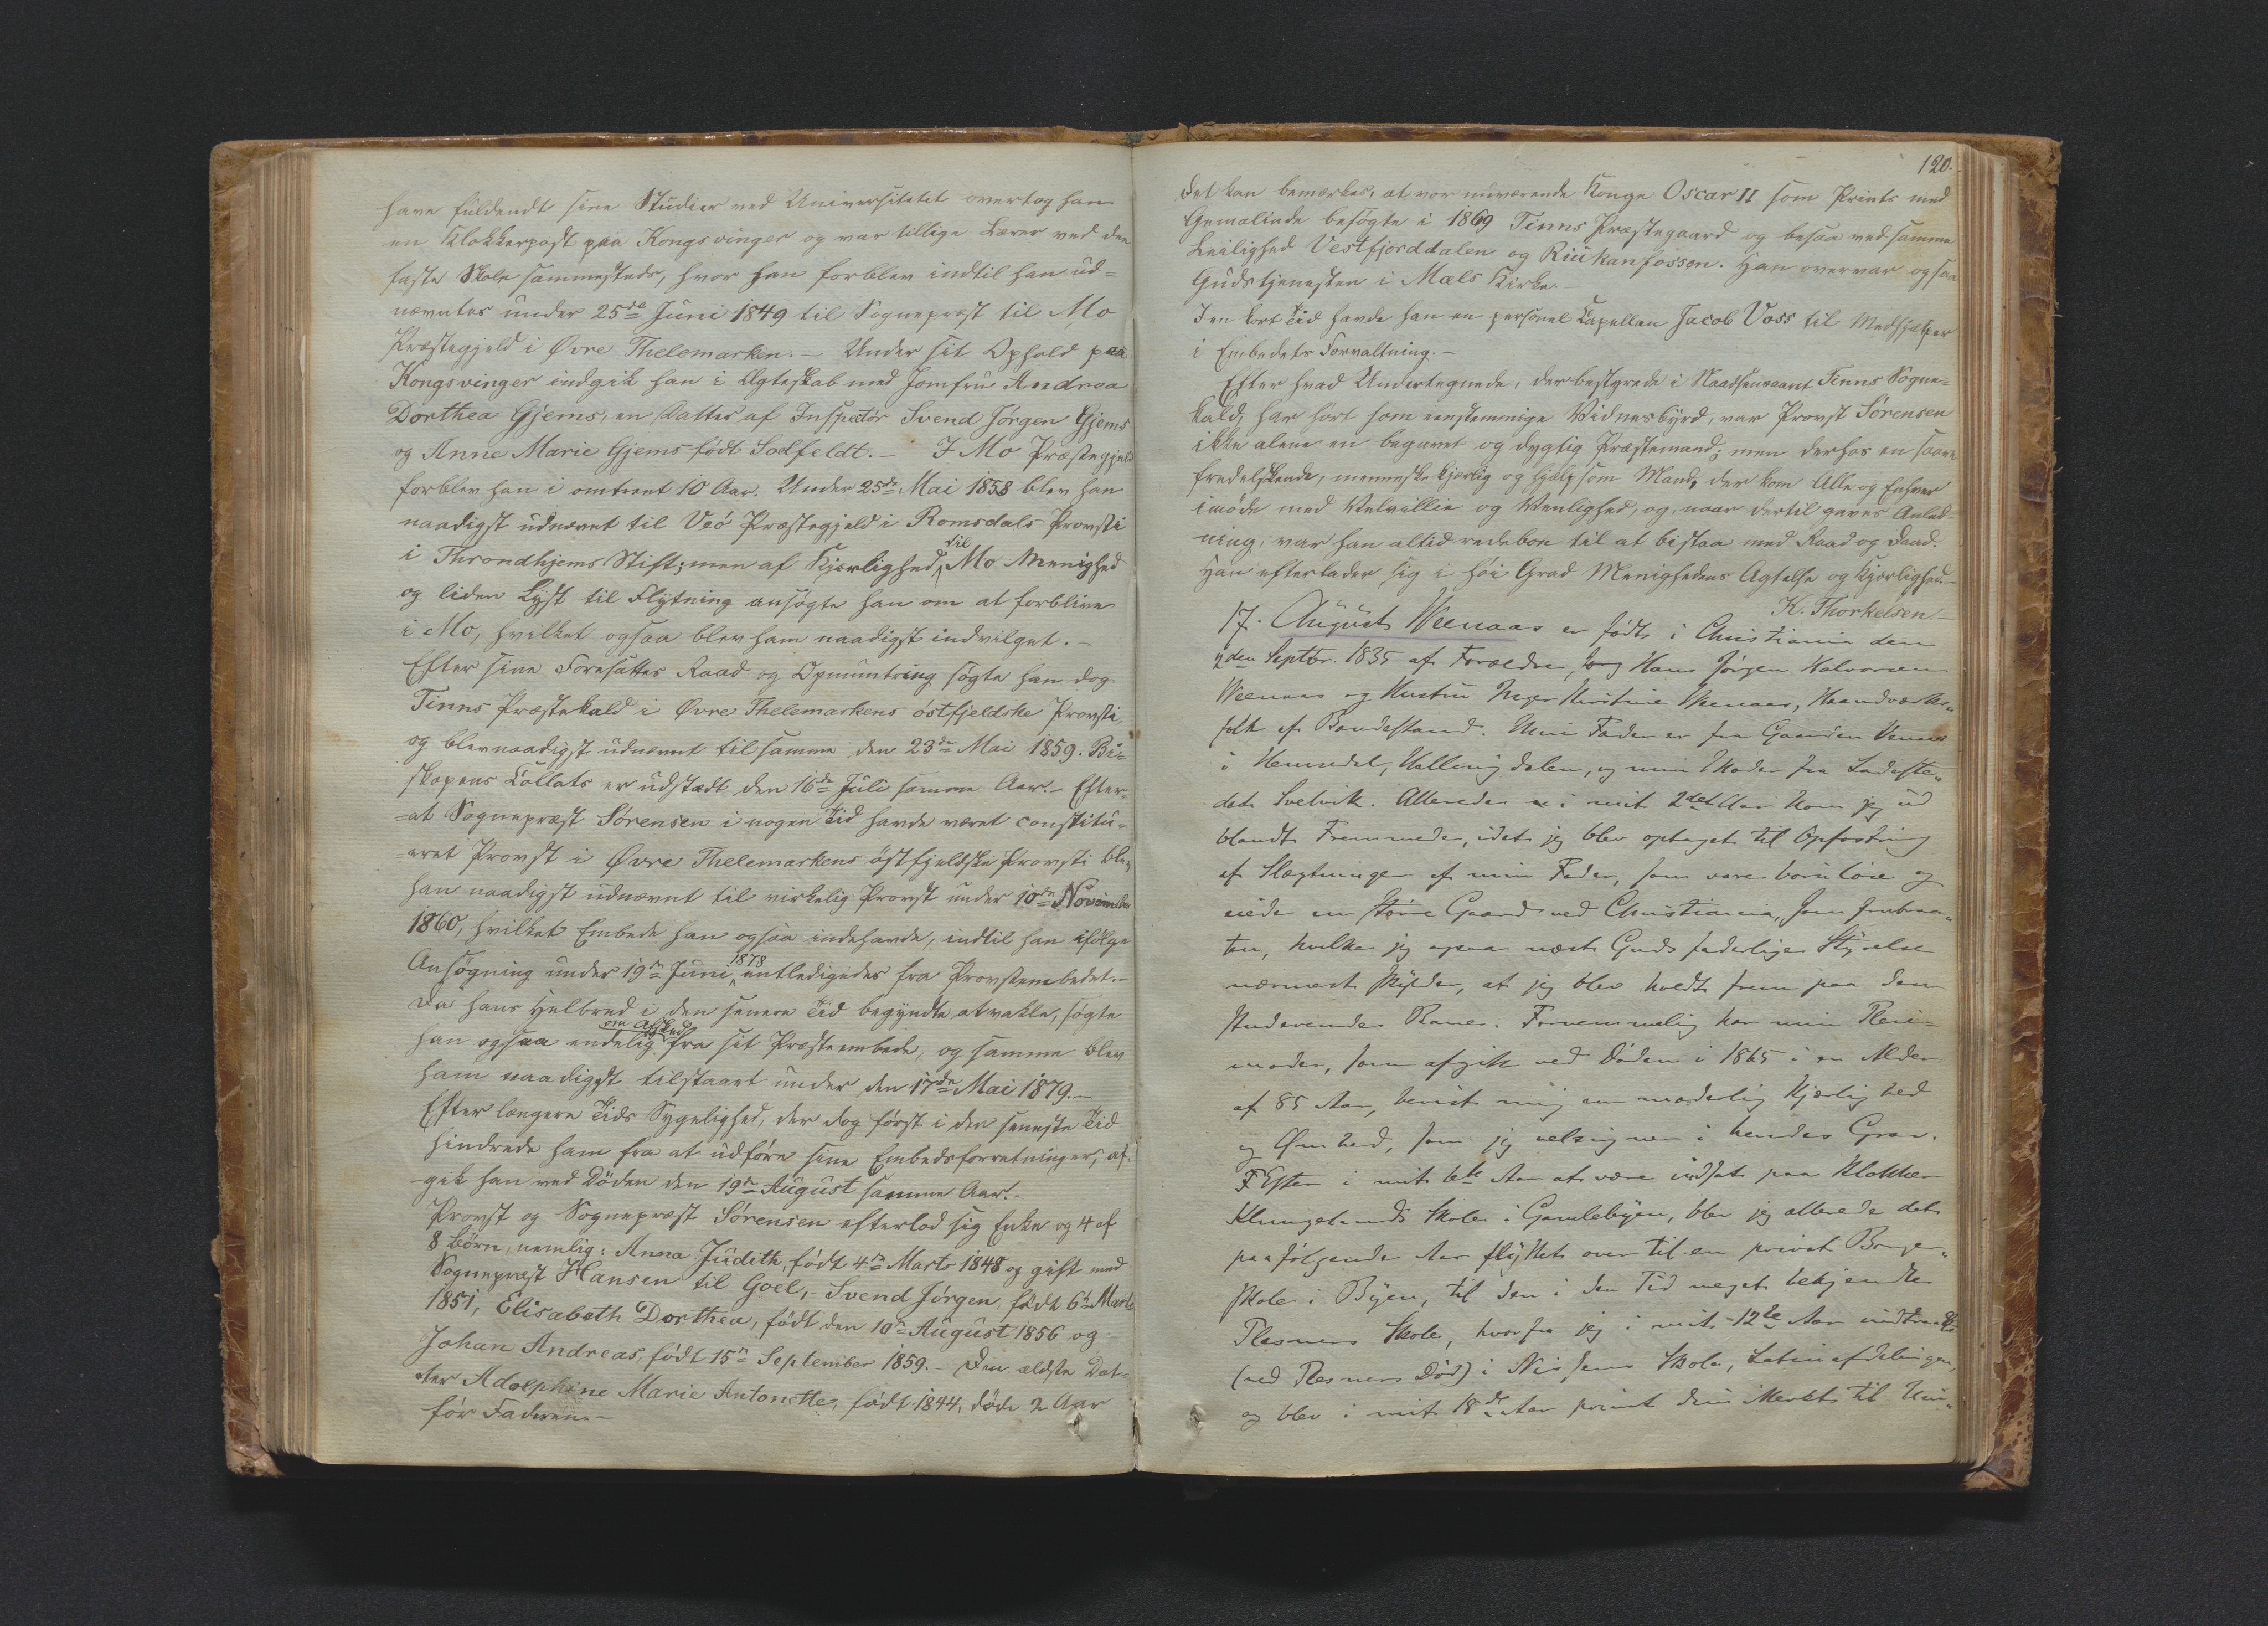 have fuldendt sine Studier ved Universitetet overtog han
en Klokkerpost paa Kongsvinger og var tillige Lærer ved den
faste Skole sammesteds, hvor han forblev indtil han ud=
nævntes under 25de Juni 1849 til Sognepræst til Mo
Præstegjeld i Øvre Thelemarken. – Under sit Ophold paa
Kongsvinger indgik han i Ægteskab med Jomfru Andrea
Dorthea Gjems, en Datter af Inspectör Svend Jørgen Gjems
og Anne Marie Gjems født Sodfeldt. – I Mo Præstegjeld
forblev han i omtrent 10 Aar. Under 25de Mai 1858 blev han
naadigst udnævnt til Veö Præstegjeld i Romsdals Provsti
i Throndhjems Stift; men af Kjærlighed til Mo Menighed
og liden Lyst til Flytning ansøgte han om at forblive
i Mo, hvilket ogsaa blev ham naadigst indvilget. –
Efter sine Foresattes Raad og Opmuntring søgte han dog
Tinns Præstekald i Øvre Thelemarkens östfjeldske Provsti,
og blev naadigst udnævnt til samme den 23de Mai 1859. Bi=
skopens Collats er udstædt den 16de Juli samme Aar. – Efter=
=at Sognepræst Sörensen i nogen Tid havde været constitu=
=eret Provst i Øvre Thelemarkens östfjeldske Provsti blev
han naadigst udnævnt til virkelig Provst under 10de November
1860, hvilket Embede han ogsaa indehavde, indtil han ifölge
Ansögning under 19de Juni 1878 entledigedes fra Provstembedet. –
Da hans Helbred i den senere Tid begyndte at vakle, søgte
han ogsaa endelig om Afsked fra sit Præsteembede, og samme blev
ham naadigst tilstaaet under den 17de Mai 1879. –
Efter længere Tids Sygelighed, der dog först i den seneste Tid
hindrede ham fra at udföre sine Embedsforretninger, af=
=gik han ved Döden den 19de August samme Aar. –
Provst og Sognepræst Sörensen efterlod sig Enke og 4 af
8 Börn, nemlig: Anna Judith, født 4de Marts 1848 og gift med
Sognepræst Hansen til Goel, – Svend Jörgen, født 6te Marts
1851, Elisabeth Dorthea, født den 10de August 1856 og
Johan Andreas, født 15de September 1859. – Den ældste Dat=
=ter Adolphine Marie Antonette, født 1844, döde 2 Aar
för Faderen. –
120.
Det kan bemærkes, at vor nuværende Konge Oscar II som Prints med
Gemalinde besögte i 1869 Tinns Præstegaard og besaa ved samme
Leilighed Vestfjorddalen og Riukanfossen. Han overvar ogsaa
Gudstjenesten i Mæls Kirke. –
I en kort Tid havde han en personel Capellan Jacob Voss til Medhjælper
i Embedets Forvaltning. –
Efter hvad Undertegnede, der bestyrede i Naadsensaaret Tinns Sogne=
kald, har hört som eenstemmige Vidnesbyrd, var Provst Sörensen
ikke alene en begavet og dygtig Præstemand; men derhos en saare
fredelskende, menneskekjærlig og hjælpsom Mand, der kom Alle og Enhver
imöde med Velvillie og Venlighed, og, naar dertil gaves Anled=
ning, var han altid redebon til at bistaa med Raad og Daad.
Han efterlader sig i höi Grad Menighedens Agtelse og Kjærlighed. –
K. Thorkelsen
17. August Weenaas er født i Christiania den
2den Septbr. 1835 af Forældre, Hans Jørgen Halvorsen
Weenaas og Hustru Inger Kirstine Weenaas, Haandværks„
folk af Bondestand. Min Fader er fra Gaarden
i Hemsedal, Hallingdalen, og min Moder fra Ladeste„
det Svelvik. Allerede i mit 2det Aar kom jeg ud
blandt Fremmede, idet jeg blev optaget til Opfostring
af Slægtninge af min Fader, som vare barnløse og
eiede en större Gaard ved Christiania,
ten, hvilke jeg ogsaa næst Guds faderlige Styrelse
nærmest skylder, at jeg blev holdt frem paa den
studerende Bane. Fornemmelig har min Pleie=
moder, som afgik ved Döden i 1865 i en Alder
af 85 Aar, bevist mig en moderlig Kjærlighed
og Ømhed, som jeg velsigner i hendes Grav.
Efter i mit 6te Aar at være indsat paa Klokker
Klungelands Skole i Gamlebyen, blev jeg allerede det
paafölgende Aar flyttet over til en privat Borger„
skole i Byen, til den i den Tid meget bekjendte
Plesners Skole, hvorfra jeg i mit 12te Aar indtraadte
(ved Plesners Död) i Nissens Skole, Latinafdelingen,
og blev i mit 18de Aar privat dimitteret til Uni„